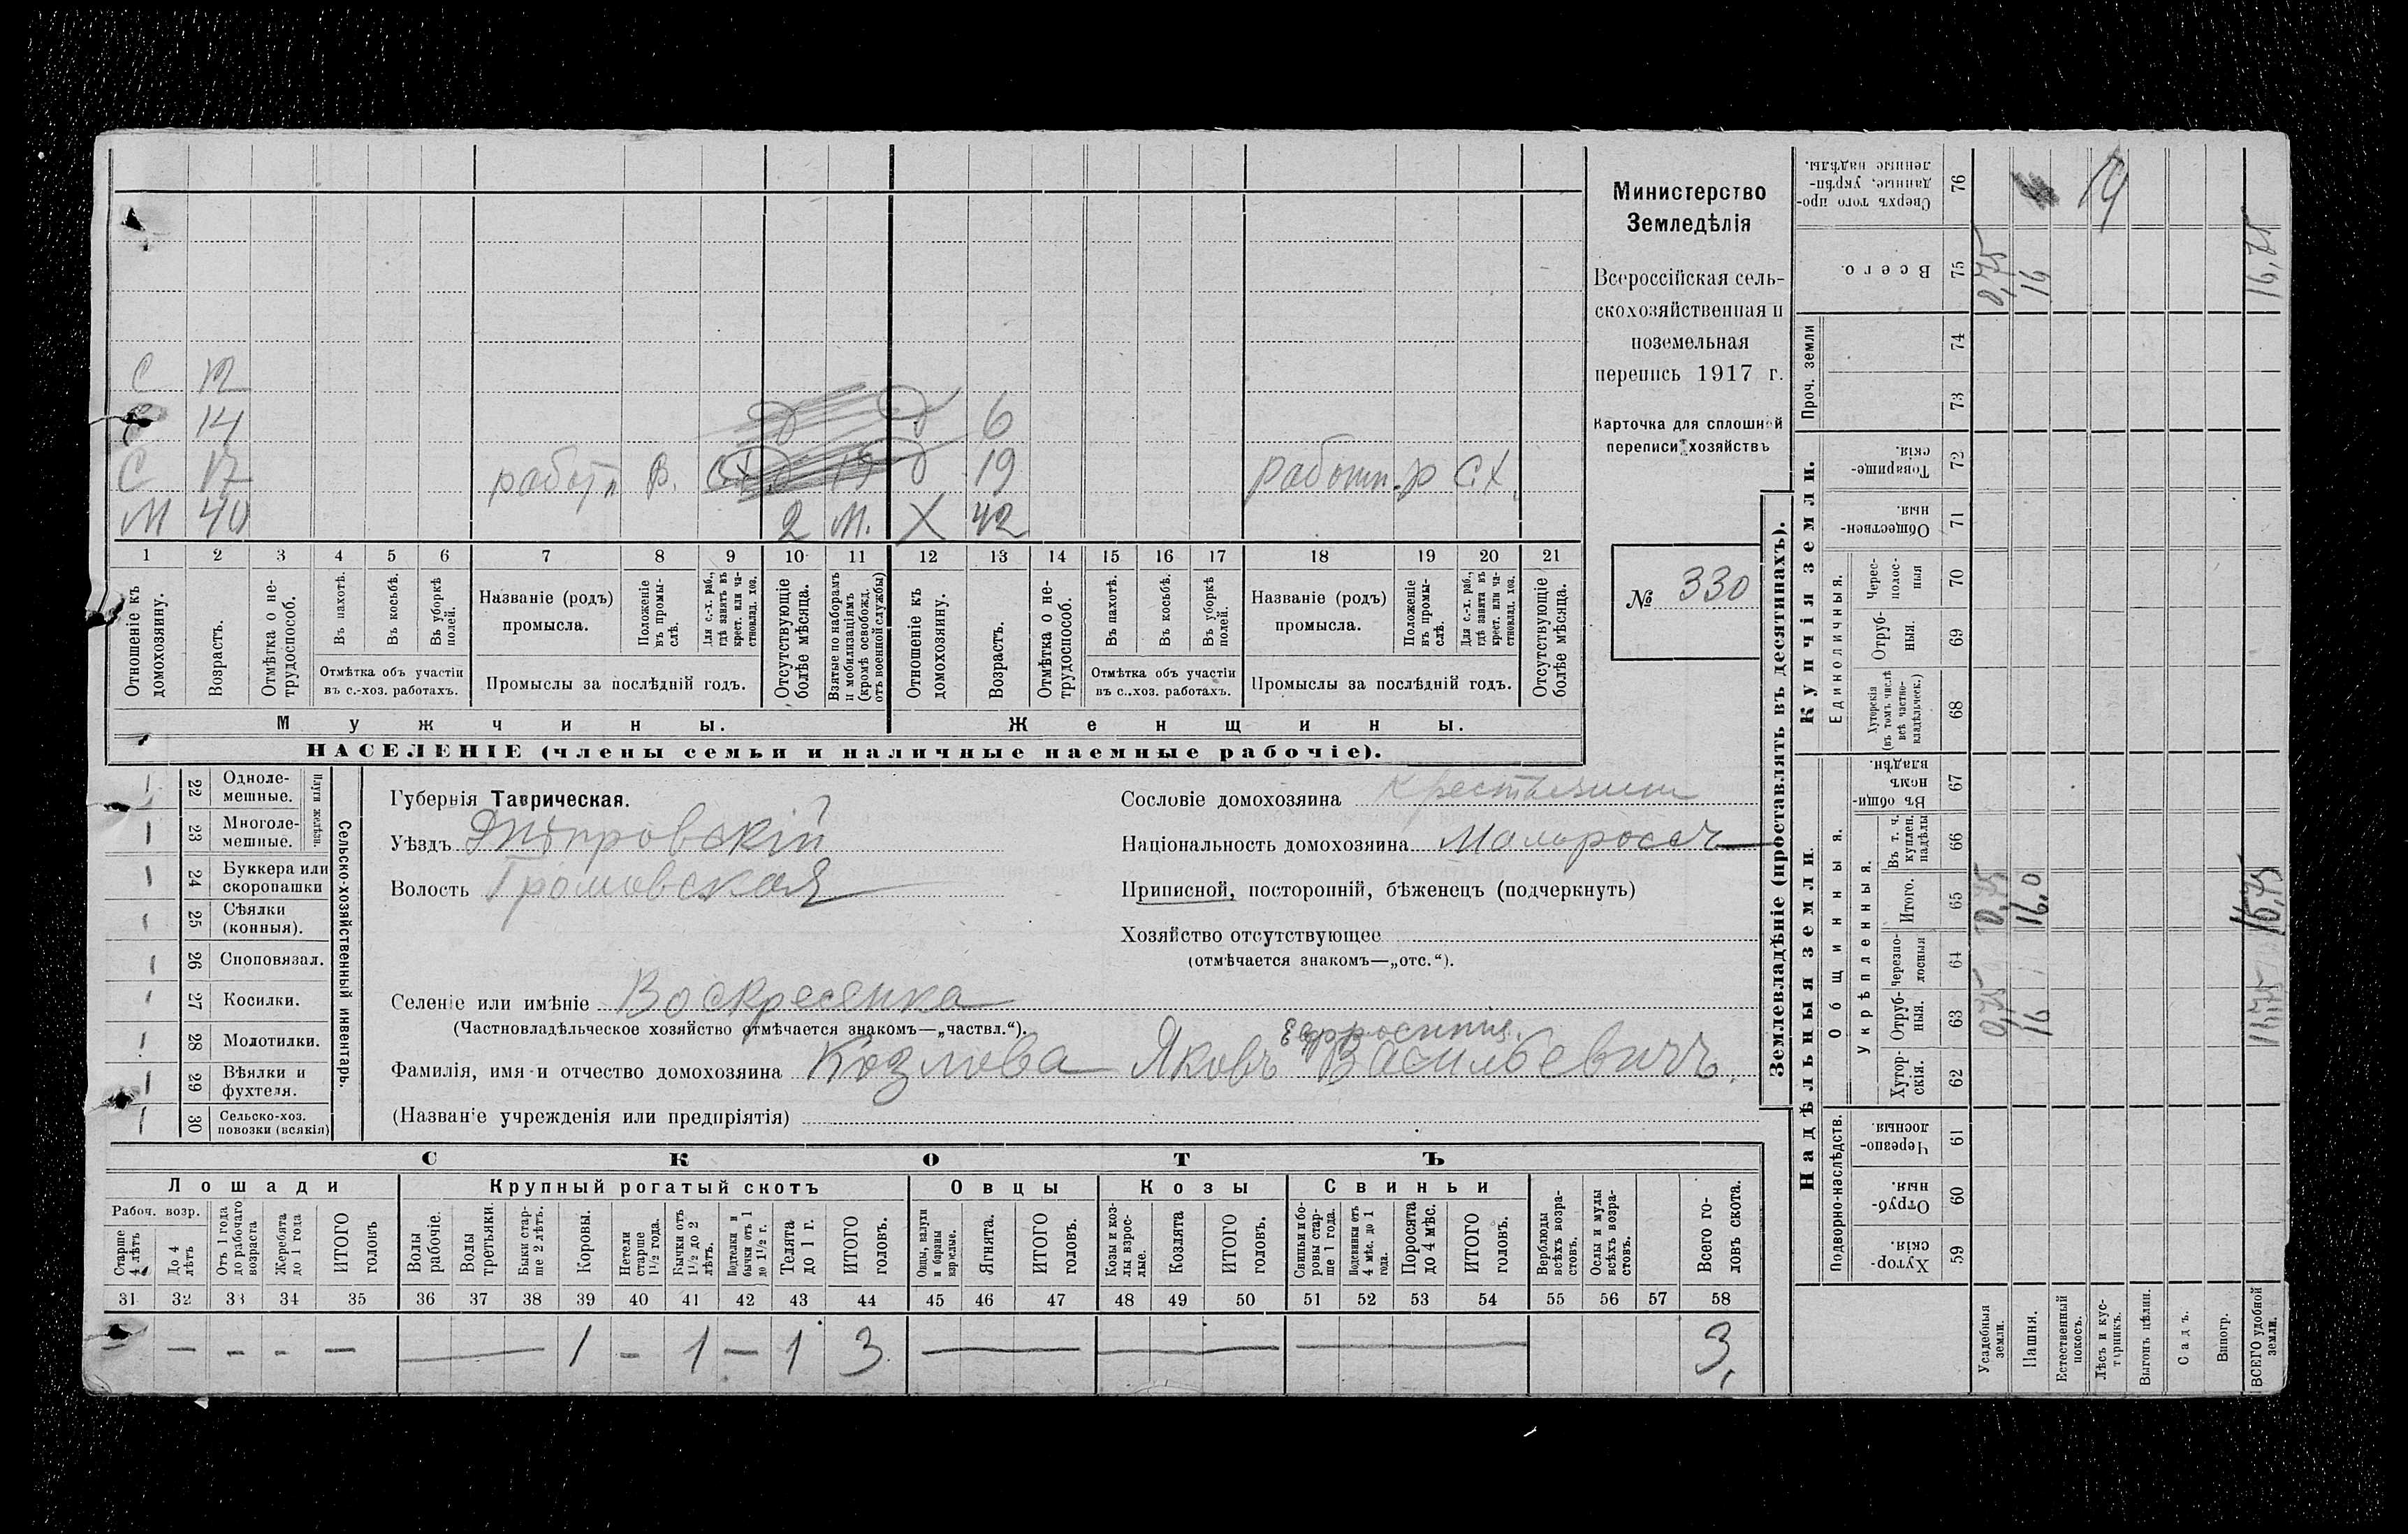 Министерство
Земледѣлія
Всероссійская сель-
скохозяйственная и
поземельная
перепись 1917 г.
Карточка для сплошной
переписи хозяйствъ
№ 330
С 12
С 14 6
С 17 работн В. д 19 работн. р СХ.
М 40 2 М. Х 42
1 2 3 4 5 6 7 8 9 10 11 12 13 14 15 16 17 18 19 20 21
Отношеніе къ домохозяину.
Возрастъ.
Отмѣтка о не-трудоспособ.
Въ пахотѣ.
Въ косьбѣ.
Въ уборкѣ полей.
Отмѣтка объ участіи
въ с.-хоз. работахъ.
Названіе (родъ)
промысла.
Положеніе въ промы-слѣ.
Для с.-х. раб., гдѣ занятъ въ крест. или ча-стновлад. хоз.
Промыслы за послѣдній годъ.
Отсутствующіе болѣе мѣсяца.
Взятые по наборамъ и мобилизаціямъ (кромѣ освобожд. отъ военной службы)
Отношеніе къ домохозяину.
Возрастъ.
Отмѣтка о не-трудоспособ.
Въ пахотѣ.
Въ косьбѣ.
Въ уборкѣ полей.
Отмѣтка объ участіи
въ с..хоз. работахъ.
Названіе (родъ)
промысла.
Положеніе въ промы-слѣ.
Для с.-х. раб., гдѣ занята въ крест. или ча-стновлад. хоз.
Промыслы за послѣдній годъ.
Отсутствующіе болѣе мѣсяца.
Мужчины. Женщины.
НАСЕЛЕНІЕ (члены семьи и наличные наемные рабочіе).
Сельско-хозяйственный инвентарь.
Плуги желѣзн.
22 Одноле-мешные.
23 Многоле-мешные.
24 Буккера или скоропашки
25 Сѣялки (конныя).
26 Сноповязал.
27 Косилки.
28 Молотилки.
29 Вѣялки и фухтеля.
30 Сельско-хоз. повозки (всякія)
Губернія Таврическая.
Уѣздъ Днѣпровскій
Волость Громовская
Селеніе или имѣніе Воскресенка
(Частновладѣльческое хозяйство отмѣчается знакомъ—„частвл.“).
Ефросинія.
Фамилія, имя и отчество домохозяина Козлова Яковъ Васильевичъ.
(Названіе учрежденія или предпріятія)
Сословіе домохозяина Крестьянин
Національность домохозяина Малороссъ
Приписной, посторонній, бѣженецъ (подчеркнуть)
Хозяйство отсутствующее
(отмѣчается знакомъ—„отс.“).
СКОТЪ
Лошади Крупный рогатый скотъ Овцы Козы Свиньи
Рабоч. возр.
Старше 4 лѣтъ
До 4 лѣтъ
Отъ 1 года до рабочаго возраста
Жеребята до 1 года
ИТОГО головъ
Волы рабочіе.
Волы третьяки.
Быки стар-ше 2 лѣтъ.
Коровы.
Нетели старше 1½ года.
Бычки отъ 1½ до 2 лѣтъ.
Подтелки и бычки отъ 1 до 1½ г.
Телята до 1 г.
ИТОГО головъ.
Овцы, валухи и бараны взрослые.
Ягнята.
ИТОГО головъ.
Козы и коз-лы взрос-лые.
Козлята
ИТОГО головъ.
Свиньи и бо-ровы стар-ше 1 года.
Подсвинки отъ 4 мѣс. до 1 года.
Поросята до 4 мѣс.
ИТОГО головъ.
Верблюды всѣхъ возра-стовъ.
Ослы и мулы всѣхъ возра-стовъ.
Всего го-ловъ скота.
31 32 33 34 35 36 37 38 39 40 41 42 43 44 45 46 47 48 49 50 51 52 53 54 55 56 57 58
— — — — — — 1 — 1 — 1 3 — — — 3
Землевладѣніе (проставлять въ десятинахъ).
Надѣльныя земли. Купчія земли.
Подворно-наслѣдств.
Общинныя.
Укрѣпленныя.
Единоличныя.
Проч. земли
59 Хутор-скія.
60 Отруб-ныя.
61 Черезпо-лосныя.
62 Хутор-скія.
63 Отруб-ныя. 0,75 16 16,75
64 Черезпо-лосныя
65 Итого. 0,75 16,0 16,75
66 Въ т. ч. куплен. надѣлы
67 Въ общи-нномъ владѣн.
68 Хуторскія (въ томъ числѣ всѣ частно-владѣльческ.)
69 Отруб-ныя.
70 Черес-полос-ныя
71 Обществен-ныя.
72 Товарище-скія.
73
74
75 Всего. 0,75 16 16,75
76 Сверхъ того про-данные, укрѣп-ленные надѣлы. 19
Усадебныя земли.
Пашня.
Естественный покосъ.
Лѣсъ и кус-тарникъ.
Выгонъ цѣлин.
Садъ.
Виногр.
ВСЕГО удобной земли.